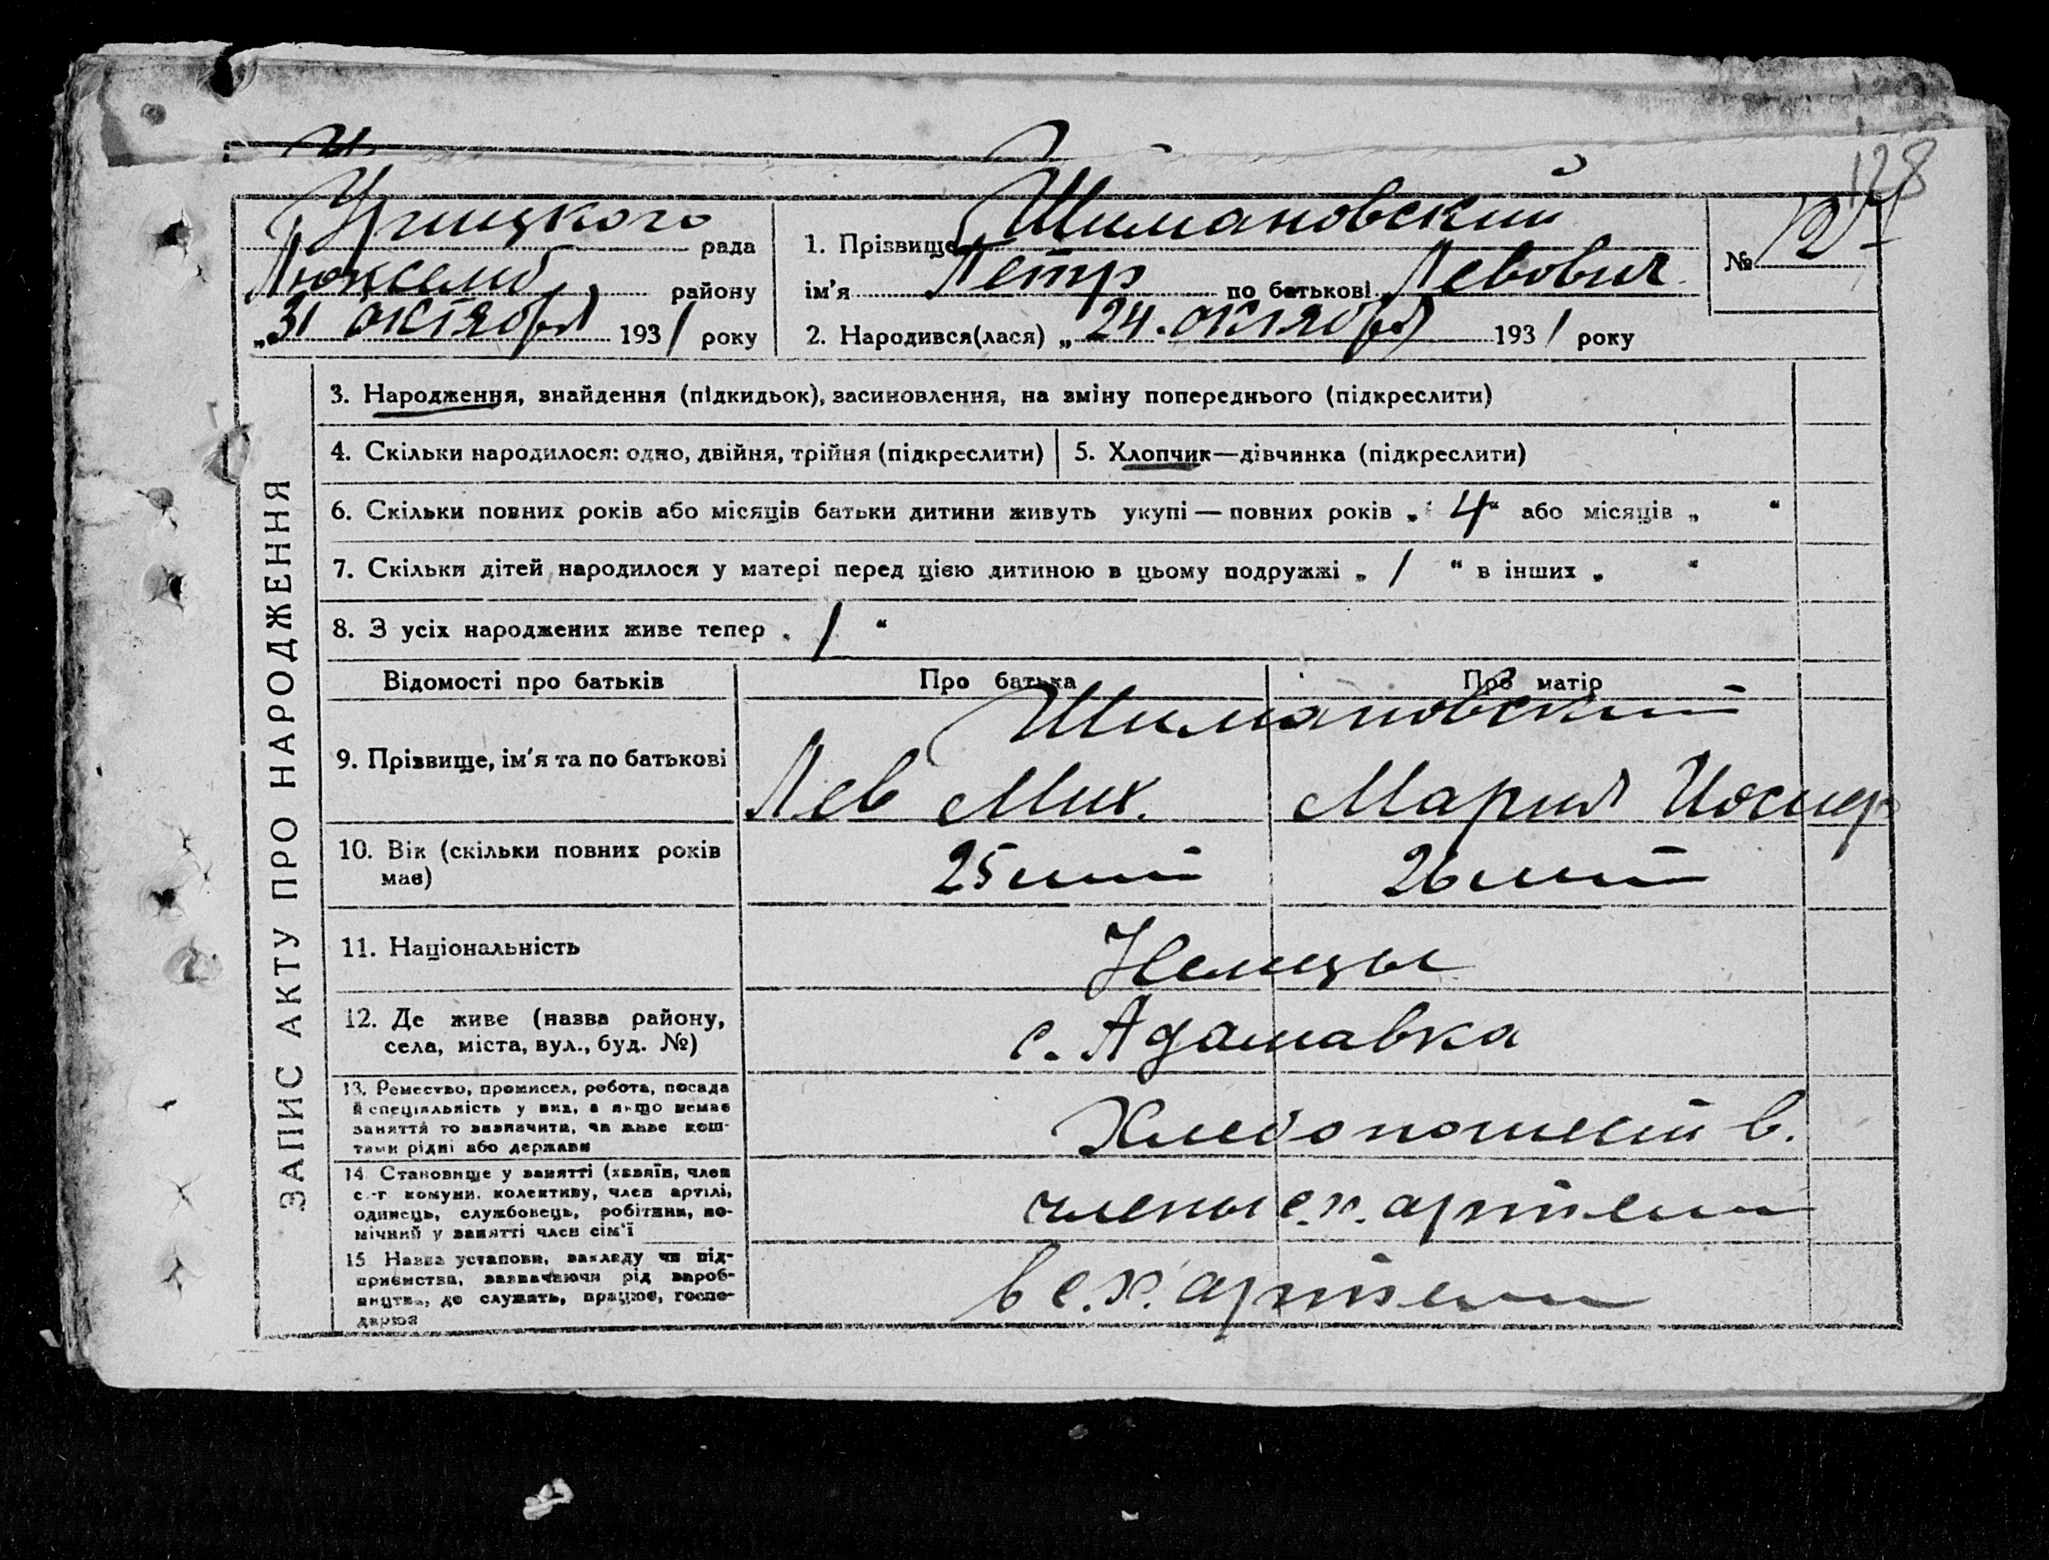 128
рада
1. Прізвище Шимановский
№
Люксемб. району
ім'я Петр по батькові Левович
„31 октября 1931 року
2. Народився(лася) „24. октября 1931 року
ЗАПИС АКТУ ПРО НАРОДЖЕННЯ
3. Народження, знайдення (підкидьок), засиновлення, на зміну попереднього (підкреслити)
4. Скільки народилося: одно, двійня, трійня (підкреслити)
5. Хлопчик—дівчинка (підкреслити)
6. Скільки повних років або місяців батьки дитини живуть укупі — повних років „ 4 “ або місяців „ “
7. Скільки дітей народилося у матері перед цією дитиною в цьому подружжі „ 1 “ в інших „ “
8. З усіх народжених живе тепер „ 1 “
Відомості про батьків
Про батька
Про матір
Шимановский
9. Прізвище, ім'я та по батькові
Лев Мих.
Мария Иосиф
10. Вік (скільки повних років
має)
25
26
11. Національність
Немцы
12. Де живе (назва району,
села, міста, вул., буд. №)
с. Адамавка
13. Ремество, промисел, робота, посада
й спеціяльність у них, а якщо немає
заняття то зазначити, чи живе кош-
тами рідні або держави
в.
14. Становище у занятті (хазяїн, член
с.-г комуни, колективу, член артілі,
одинець, службовець, робітник, по-
мічний у занятті член сім'ї
члены с.х. артели
15. Назва установи, закладу чи під-
приємства, зазначаючи рід вироб-
ництва, де служить, працює, госпо-
дарює
в с.х. артели